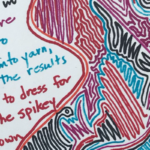 to
into yarn,
the results
to dress for
the spikey
own